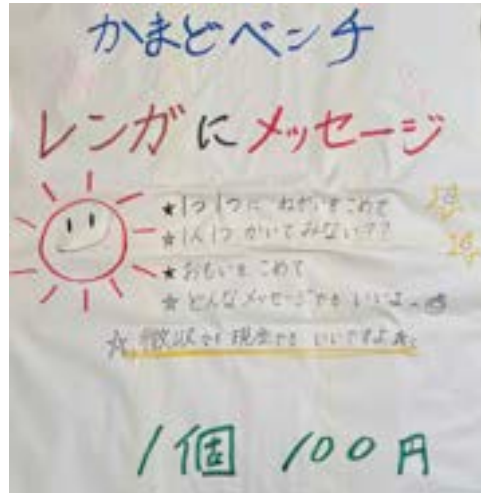 かまどベンチ
レンガにメッセージ
★1つ1つに ねがいをこめて
★1人1つ かいてみない??
★おもいを こめて
★どんなメッセージでも いいよ
現金でも いいですよ
1個 100円